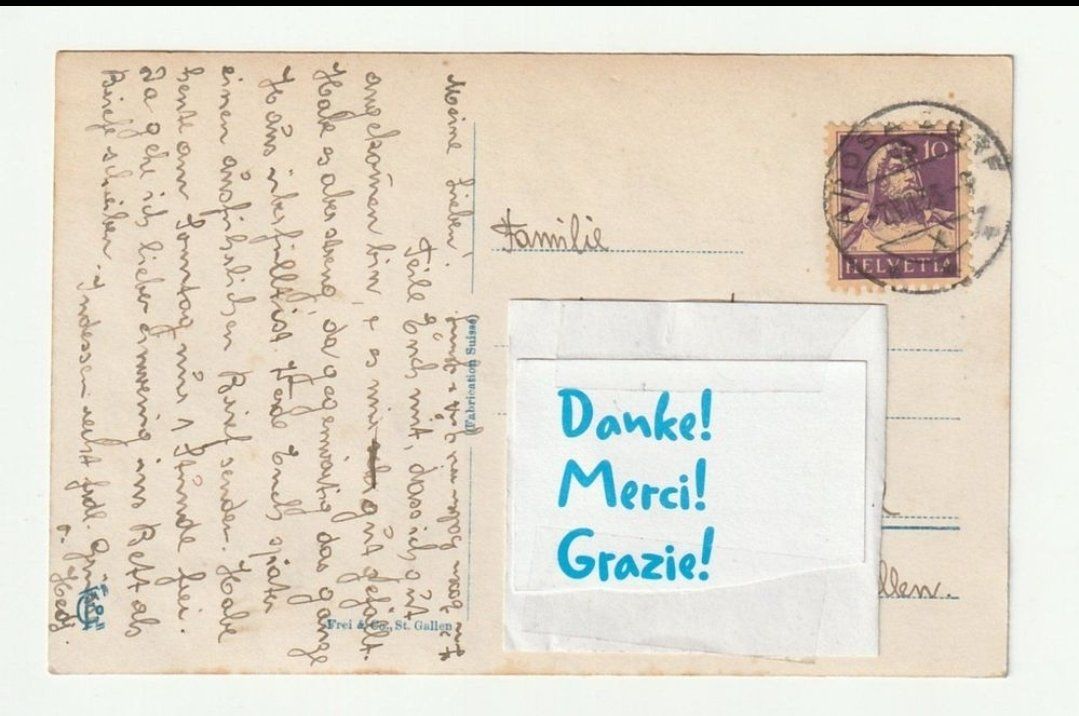 Meine Lieben!
Teile Euch mit, dass ich gut
angekom̄en bin, & es mir gut gefällt.
Habe es aber streng, da gegenwärtig das ganze
Haus überfüllt ist. Werde Euch später
einen ausführlichen Brief senden. Habe
heute am Sonntag nur 1 Stunde frei.
Da gehe ich lieber ein wenig ins Bett als
Briefe schreiben. Indessen recht frdl. Grüsse
v. Hedy.
(Fabrication Suisse)
Frei & Co., St. Gallen
Familie
10
HELVETIA
Danke!
Merci!
Grazie!
llen.